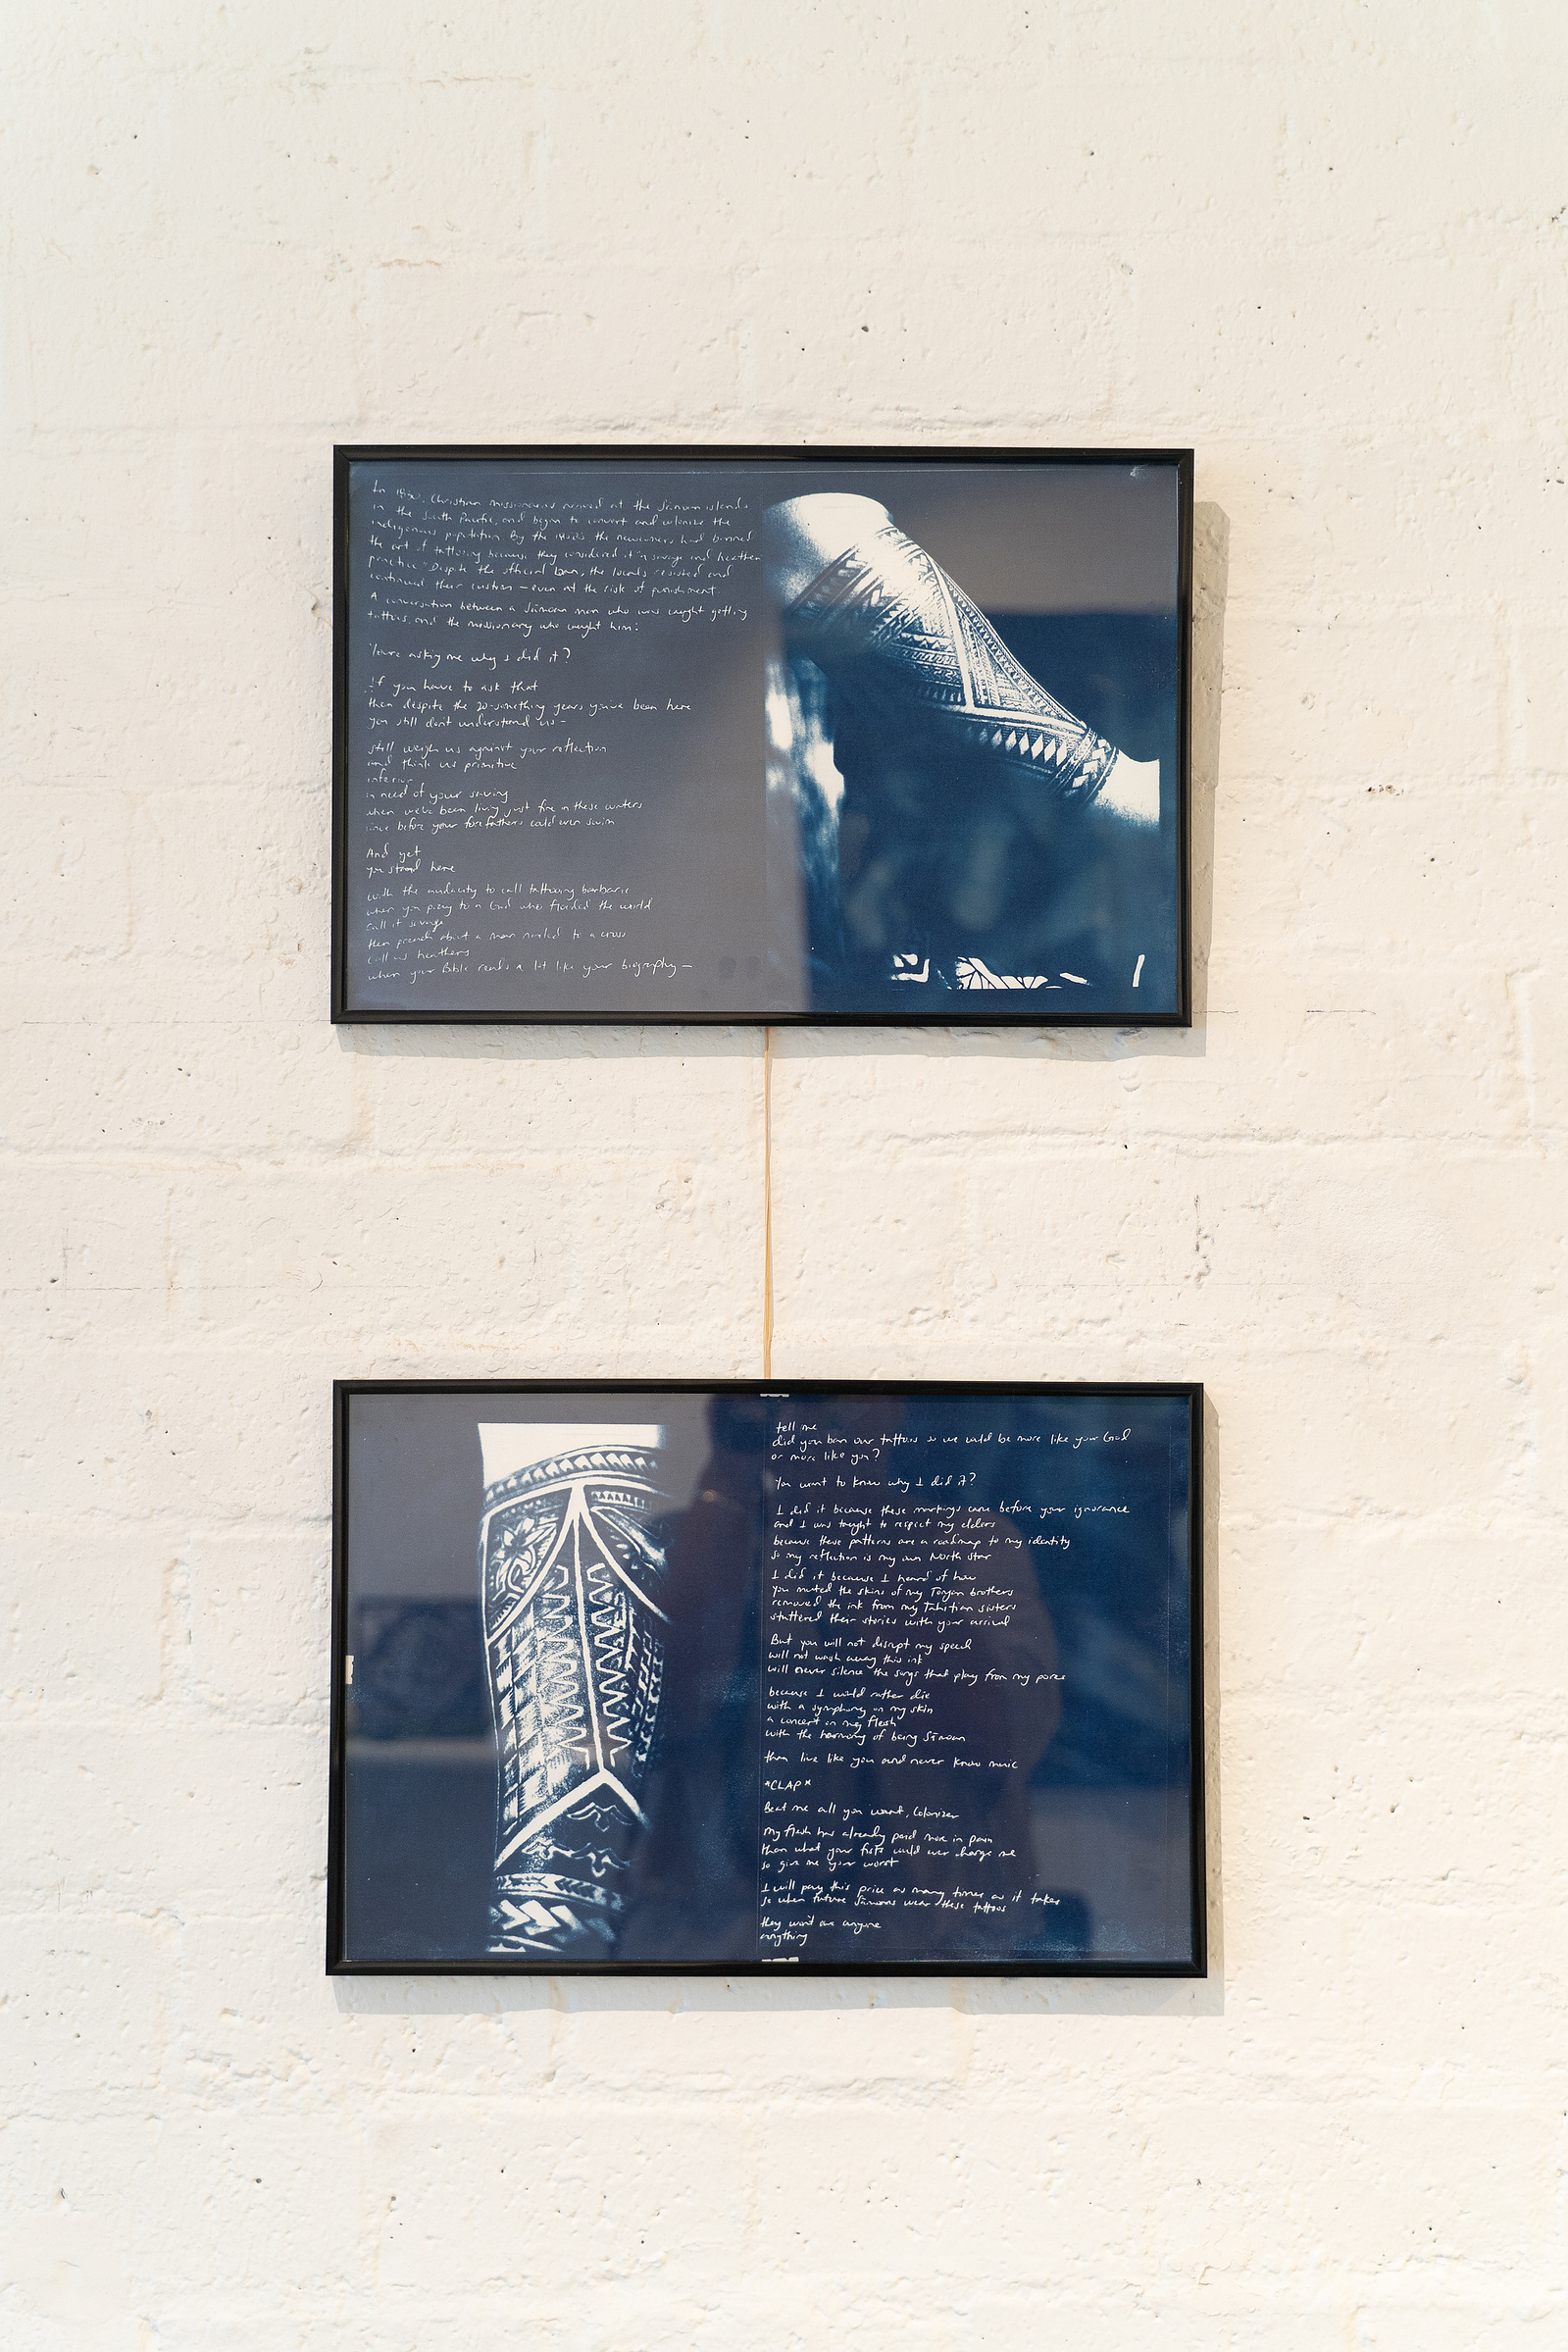 In 1830, Christian missionaries arrived at the Sāmoan islands
in the South Pacific, and began to convert and colonize the
indigenous population. By the the newcomers had banned
the art of tattooing because they considered it "a savage and heathen
practice". Despite the official ban, the locals resisted and
continued their custom — even at the risk of punishment.
A conversation between a Sāmoan man who was caught getting
tattoos, and the missionary who caught him:
You're asking me why I did it?
If you have to ask that
then despite the 20-something years you've been here
you still don't understand us —
still weigh us against your reflection
and think us primitive
inferior
in need of your saving
when we've been living just fine in these waters
since before your forefathers could even swim
And yet
you stand here
with the audacity to call tattooing barbaric
when you pray to a God who flooded the world
call it savage
then preach about a man nailed to a cross
call us heathens
when your Bible reads a lot like your biography —
tell me
did you ban our tattoos so we could be more like your God
or more like you?
You want to know why I did it?
I did it because these markings came before your ignorance
and I was taught to respect my elders
because these patterns are a roadmap to my identity
so my reflection is my own North Star
I did it because I heard of how
you muted the skins of my Tongan brothers
removed the ink from my Tahitian sisters
stuttered their stories with your arrival
But you will not disrupt my speech
will not wash away this ink
will never silence the songs that play from my pores
because I would rather die
with a symphony on my skin
a concert on my flesh
with the harmony of being Sāmoan
than live like you and never know music
*CLAP*
Beat me all you want, Colonizer
My flesh has already paid more in pain
than what your fists could ever charge me
so give me your worst
I will pay this price as many times as it takes
so when future Sāmoans wear these tattoos
they won't owe anyone
anything